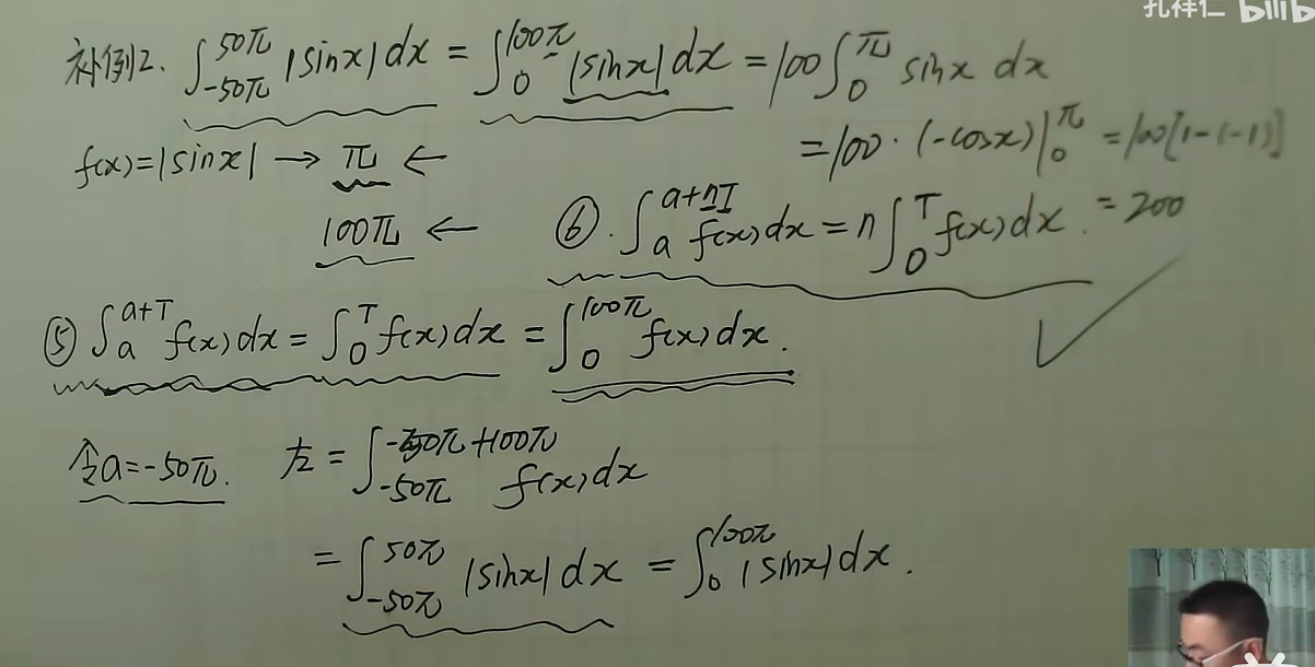 孔祥仁 bilib
补例2. ∫_{-50π}^{50π} |sinx| dx = ∫_0^{100π} |sinx| dx = 100∫_0^π sinx dx
= 100 · (-cosx)|_0^π = 100[1-(-1)]
f(x)=|sinx| → π ←
= 200
100π ← ⑥. ∫_a^{a+nT} f(x)dx = n∫_0^T f(x)dx.
⑤ ∫_a^{a+T} f(x)dx = ∫_0^T f(x)dx = ∫_0^{100π} f(x)dx.
令a=-50π. 左 = ∫_{-50π}^{-50π+100π} f(x)dx
= ∫_{-50π}^{50π} |sinx| dx = ∫_0^{100π} |sinx| dx.